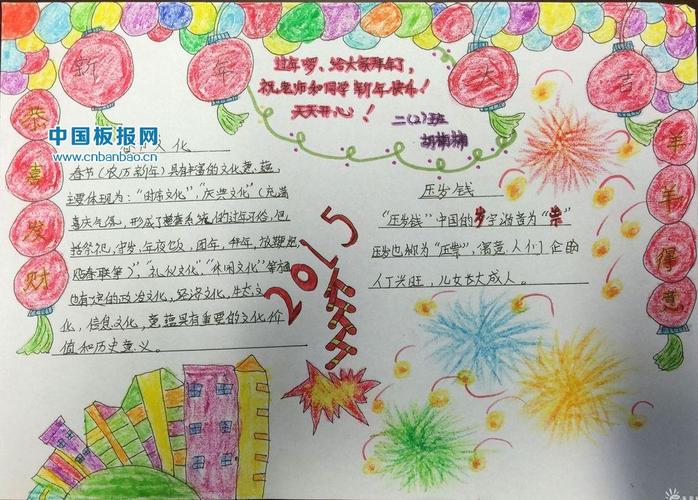 新年大吉
过年啰、给大家拜年了,
祝老师和同学新年快乐!
天天开心!
二(2)班
恭喜发财
羊羊得意
中国板报网
www.cnbanbao.cn
文化
春节(农历新年)具有丰富的文化意蕴,
主要体现为:“时令文化”,“庆典文化”(充满
喜庆气氛,形成了整套系统的过年习俗,包
括祭祀,守岁,年夜饭,团年,拜年,放鞭炮
贴春联等),“礼仪文化”,“休闲文化”等
也有定的政治文化,经济文化,生态文
化,信息文化,意蕴具有重要的文化价
值和历史意义。
2015
压岁钱
“压岁钱”中国的岁字谐音为“祟”
压岁也称为“压祟”,寓意人们企盼
人丁兴旺,儿女长大成人。